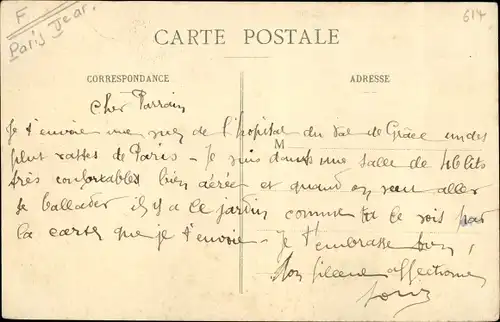 F
Paris Jear.
617
CARTE POSTALE
CORRESPONDANCE
ADRESSE
M
Cher Parrain
Je t'envoie une vue de l'hopital du Val de Grâce un des
plus vastes de Paris - Je suis dans une salle de 46 lits
très confortables bien aérée et quand on veut aller
se ballader il y a le jardin comme tu le vois par
la carte que je t'envoie - Je t'embrasse bien,
Ton filleul affectionné